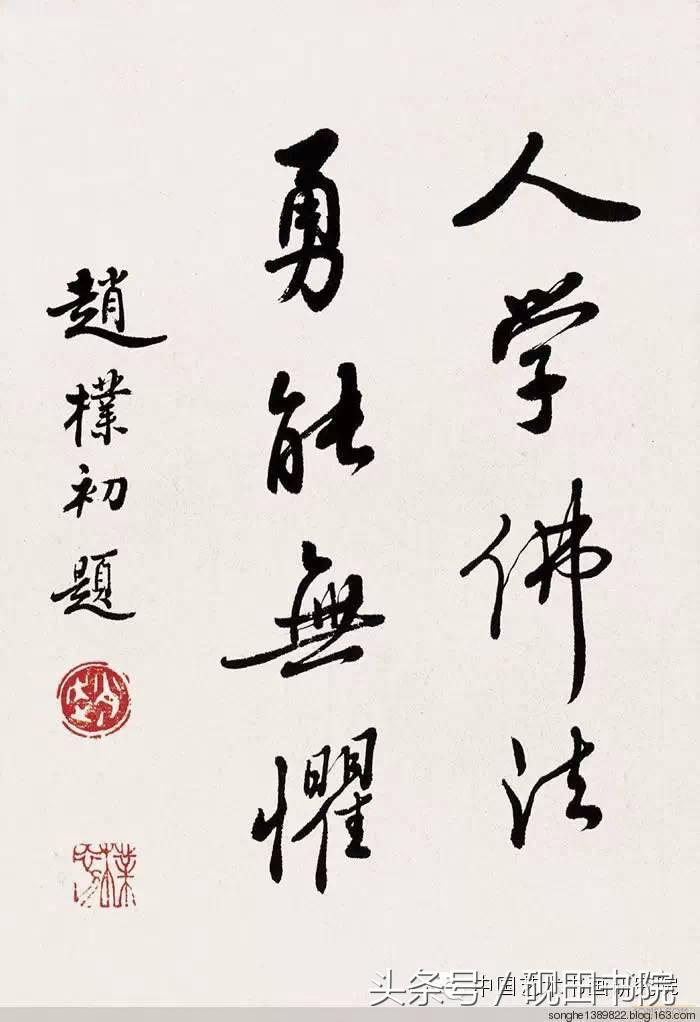 人学佛法
勇能無懼
趙樸初題
头条号/砚田书院
songhe1389822.blog.163.com